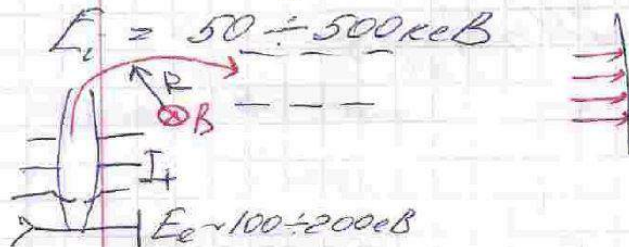 E_i = 50 ÷ 500 кеВ
R
B
I_+
E_e ~ 100 ÷ 200 эВ